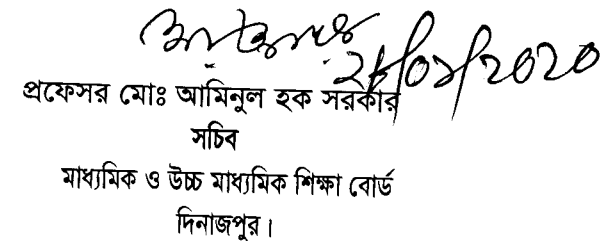 ২৮/০১/২০২০
প্রফেসর মোঃ আমিনুল হক সরকার
সচিব
মাধ্যমিক ও উচ্চ মাধ্যমিক শিক্ষা বোর্ড
দিনাজপুর।